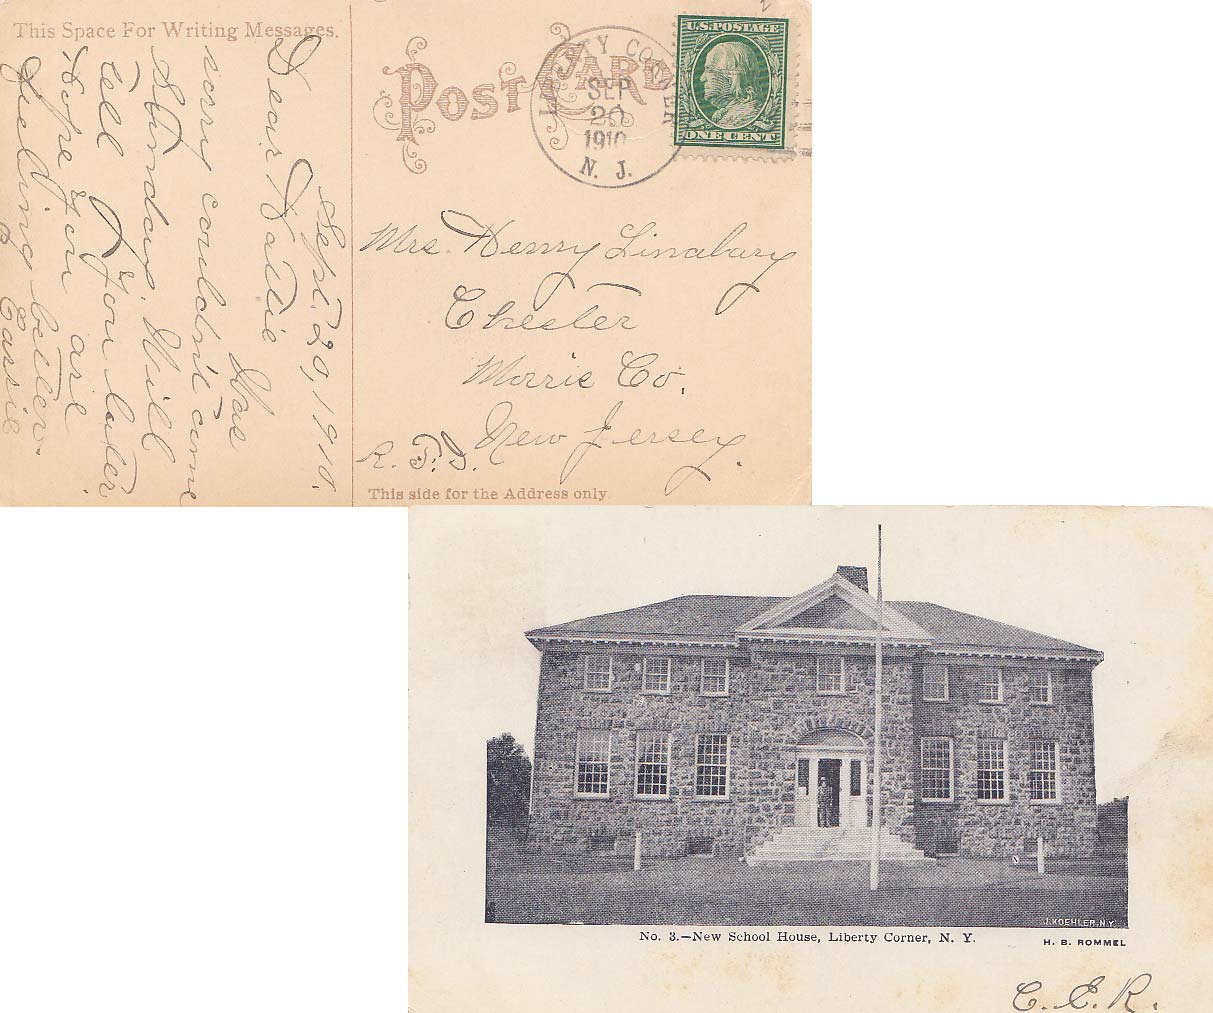 This Space For Writing Messages.
Sept. 20, 1910.
Dear Hattie
Was
sorry couldn't come
Sunday. Will
tell you later.
Hope you are
feeling better.
Carrie
POST CARD
LIBERTY CORNER
SEP
20
1910
N. J.
U.S. POSTAGE
ONE CENT
2
Mrs. Henry Linabury
Chester
Morris Co.
New Jersey.
R. F. D.
This side for the Address only
J. KOEHLER. N.Y.
No. 3.—New School House, Liberty Corner, N. Y.
H. B. ROMMEL
C. E. R.